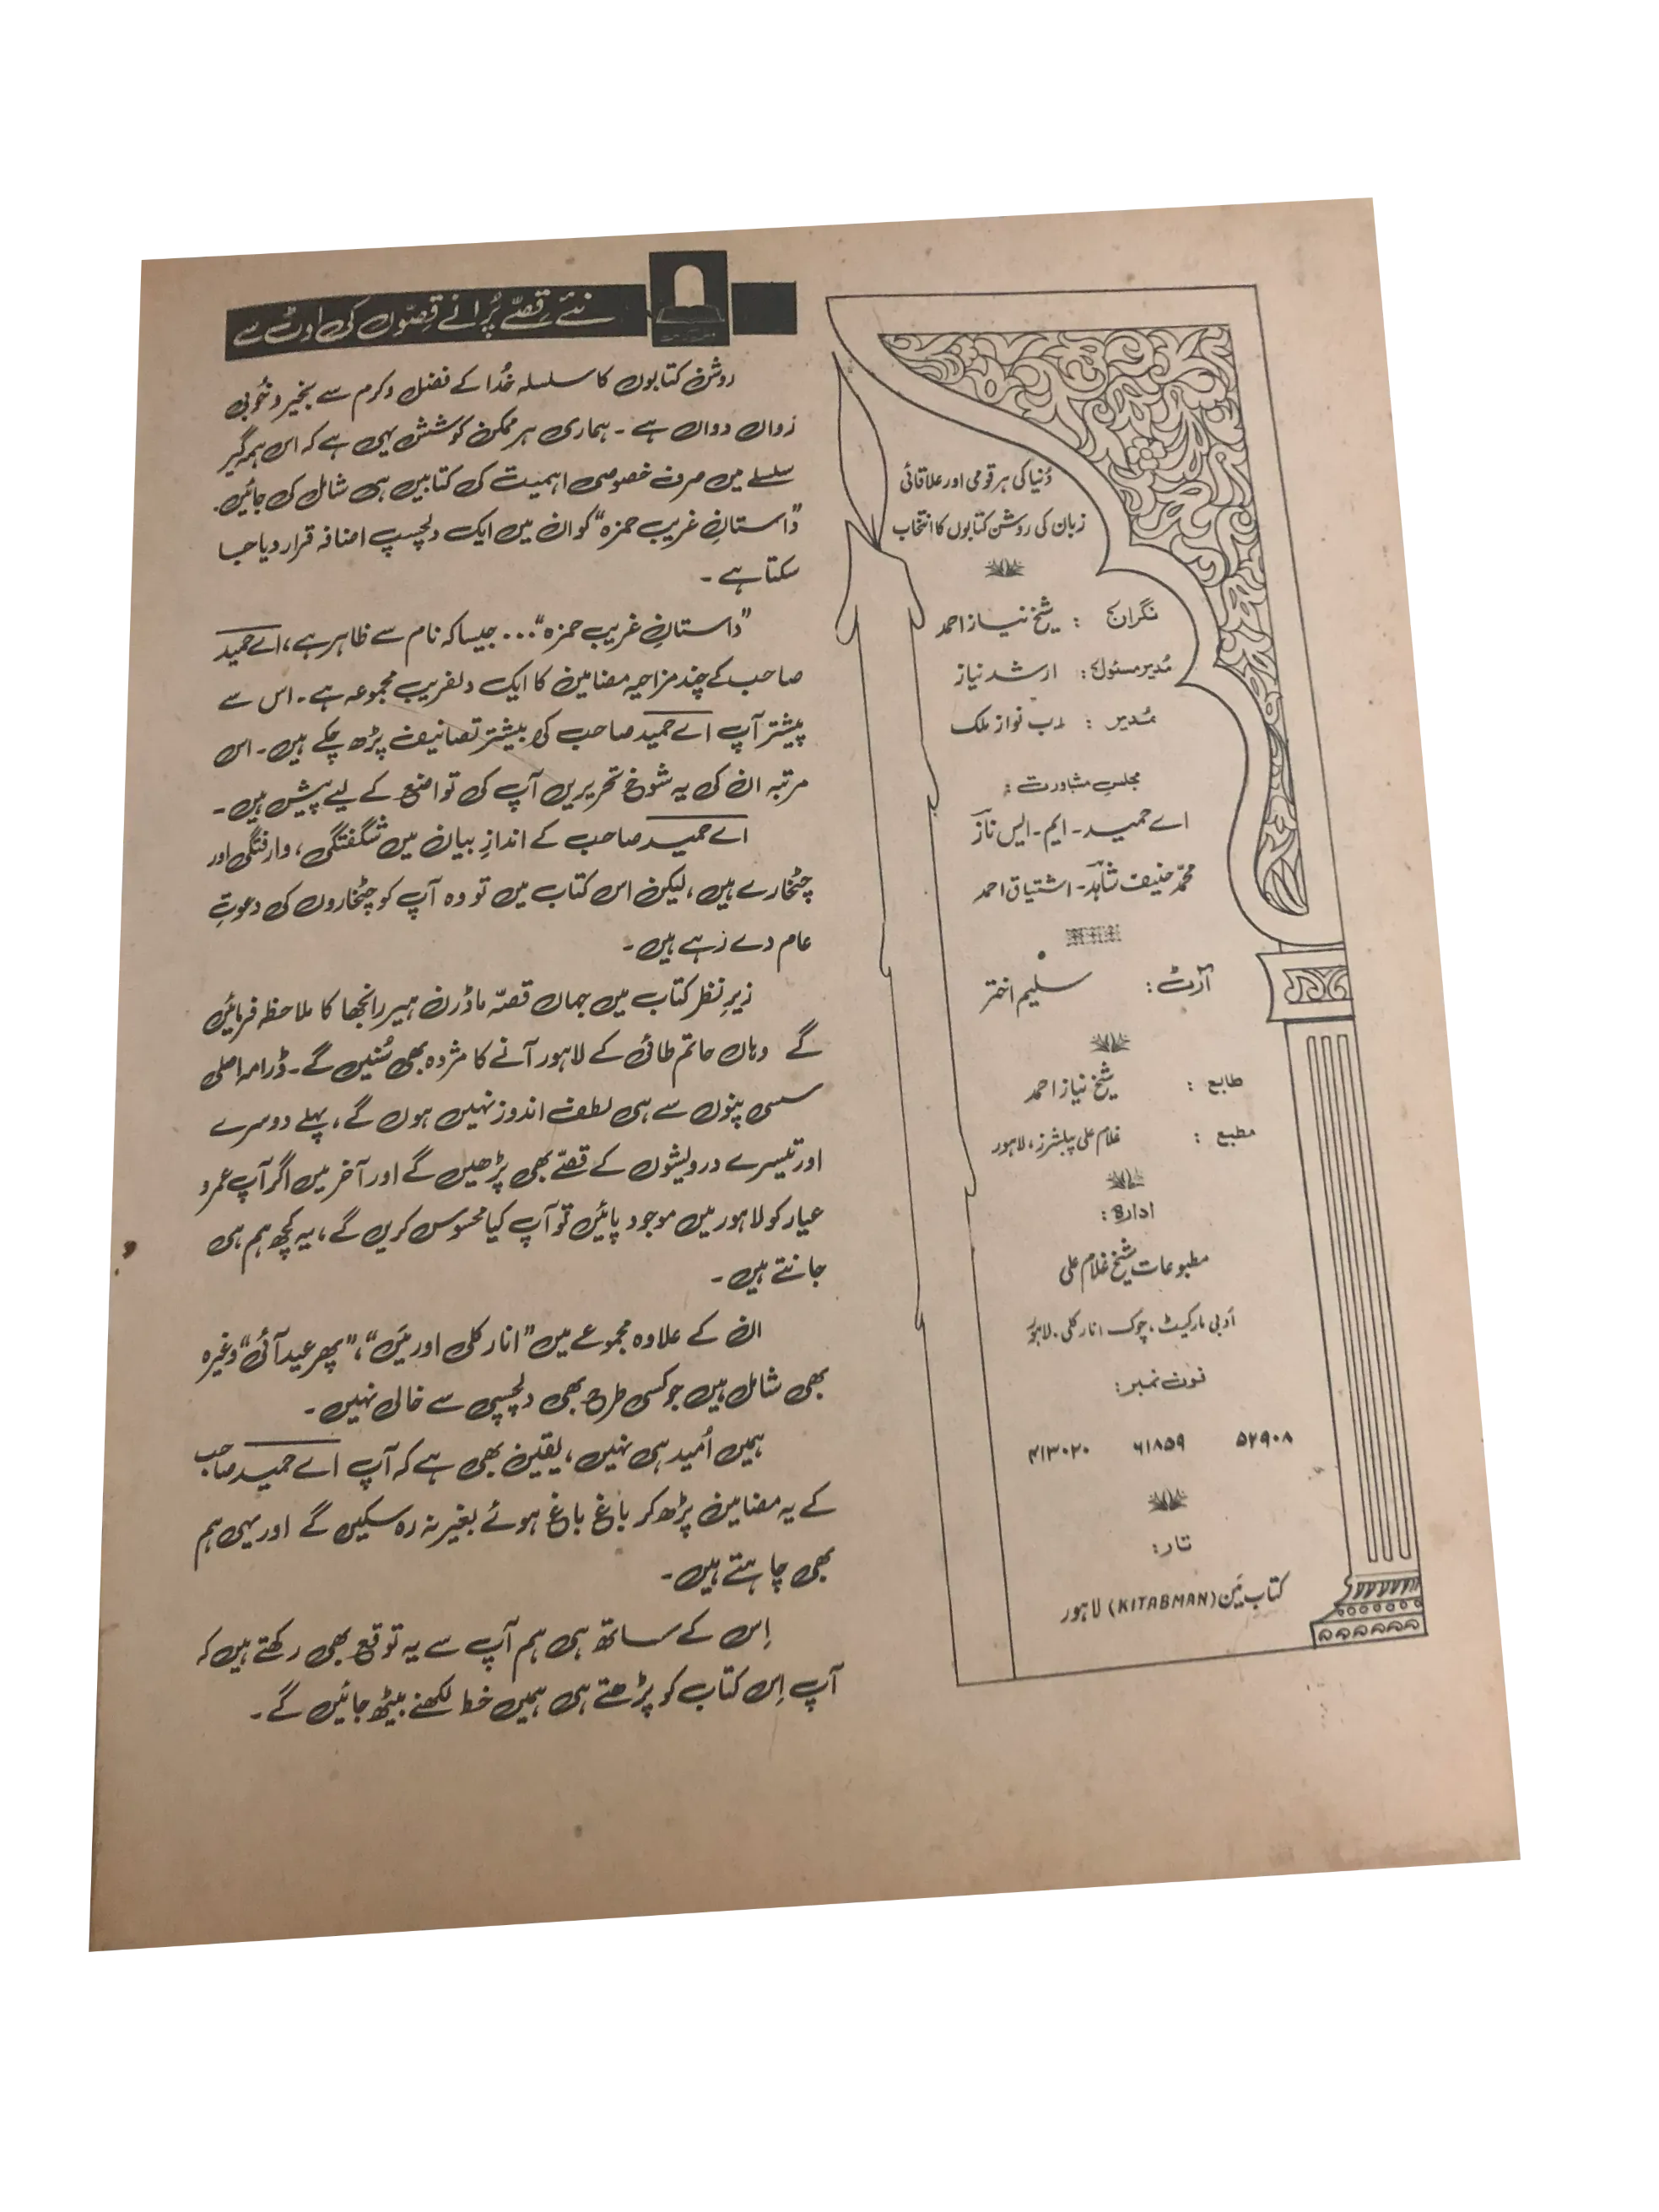 دُنیا کی ہر قومی اور علاقائی
زبان کی روشن کتابوں کا انتخاب
نگران : شیخ نیاز احمد
مُدیر مسئول : ارشد نیاز
مُدیر : رب نواز ملک
مجلسِ مشاورت :
اے حمید - ایم - ایس ناز
محمّد حنیف شاہد - اشتیاق احمد
آرٹ : سلیم اختر
طابع : شیخ نیاز احمد
مطبع : غلام علی پبلشرز، لاہور
ادارہ :
مطبوعات شیخ غلام علی
ادبی مارکیٹ، چوک انار کلی، لاہور
فون نمبر :
۵۲۹۰۸ ۶۱۸۵۹ ۴۱۳۰۲۰
تار :
کتاب مَین (KITABMAN) لاہور
نئے قِصّے پُرانے قِصّوں کی اوٹ سے
روشن کتابوں کا سلسلہ خُدا کے فضل و کرم سے بخیر و خُوبی
رَواں دواں ہے ۔ ہماری ہر ممکن کوشش یہی ہے کہ اس ہمہ گیر
سلسلے میں صرف خصوصی اہمیت کی کتابیں ہی شامل کی جائیں۔
”داستانِ غریب حمزہ“ کو ان میں ایک دلچسپ اضافہ قرار دیا جا
سکتا ہے ۔
”داستانِ غریب حمزہ“... جیسا کہ نام سے ظاہر ہے، اے حمید
صاحب کے چند مزاحیہ مضامین کا ایک دلفریب مجموعہ ہے ۔ اس سے
پیشتر آپ اے حمید صاحب کی بیشتر تصانیف پڑھ چکے ہیں ۔ اس
مرتبہ ان کی یہ شوخ تحریریں آپ کی تواضع کے لیے پیش ہیں ۔
اے حمید صاحب کے اندازِ بیان میں شگفتگی، وارفتگی اور
چٹخارے ہیں، لیکن اس کتاب میں تو وہ آپ کو چٹخاروں کی دعوتِ
عام دے رہے ہیں ۔
زیرِ نظر کتاب میں جہاں قصّہ ماڈرن ہیر رانجھا کا ملاحظہ فرمائیں
گے وہاں حاتم طائی کے لاہور آنے کا مژدہ بھی سُنیں گے ۔ ڈرامہ اصلی
سسی پنوں سے ہی لطف اندوز نہیں ہوں گے، پہلے دوسرے
اور تیسرے درویشوں کے قصّے بھی پڑھیں گے اور آخر میں اگر آپ عمرو
عیار کو لاہور میں موجود پائیں تو آپ کیا محسوس کریں گے، یہ کچھ ہم ہی
جانتے ہیں ۔
ان کے علاوہ مجموعے میں ”انار کلی اور مَیں“، ”پھر عید آئی“ وغیرہ
بھی شامل ہیں جو کسی طرح بھی دلچسپی سے خالی نہیں ۔
ہمیں اُمید ہی نہیں، یقین بھی ہے کہ آپ اے حمید صاحب
کے یہ مضامین پڑھ کر باغ باغ ہوئے بغیر نہ رہ سکیں گے اور یہی ہم
بھی چاہتے ہیں ۔
اِس کے ساتھ ہی ہم آپ سے یہ توقع بھی رکھتے ہیں کہ
آپ اِس کتاب کو پڑھتے ہی ہمیں خط لکھنے بیٹھ جائیں گے ۔